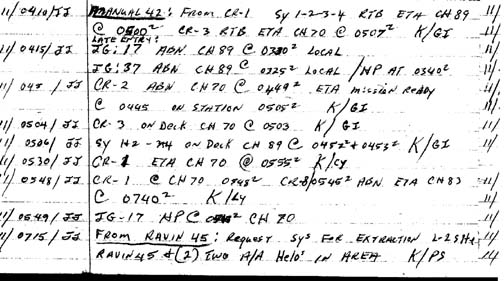 11/0410/JJ MANUAL 42: FROM CR-1 Sy 1-2-3-4 RTB ETA CH 89 11/
@ 0500Z CR-3 RTB ETA CH 70 @ 0507Z K/GI
LATE ENTRY:
11/0415/JJ JG-17 ABN CH 89 @ LOCAL 11/
JG-37 ABN CH 89 @ 0325Z LOCAL / NP AT 0340Z 11/
11/ /JJ CR-2 ABN CH 70 @ 0449Z ETA MISSION READY 11/
@ 0445 ON STATION 0505Z K/GI
11/0504/JJ CR-3 ON DECK CH 70 @ 0503 K/GI 11/
11/0506/JJ Sy ON DECK CH 89 @ 0452Z + 0453Z K/GI 11/
11/0530/JJ CR-1 ETA CH 70 @ 0555Z K/Ly 11/
11/0548/JJ CR-1 @ CH 70 0548Z 0545Z ABN ETA CH 83 11/
@ 0740Z K/Ly
11/0549/JJ JG-17 NP @ CH 70
11/0715/JJ FROM RAVIN 45: REQUEST Sys FOR EXTRACTION 11/
RAVIN 45 & (2) TWO A/A Helo's IN AREA K/PS 11/